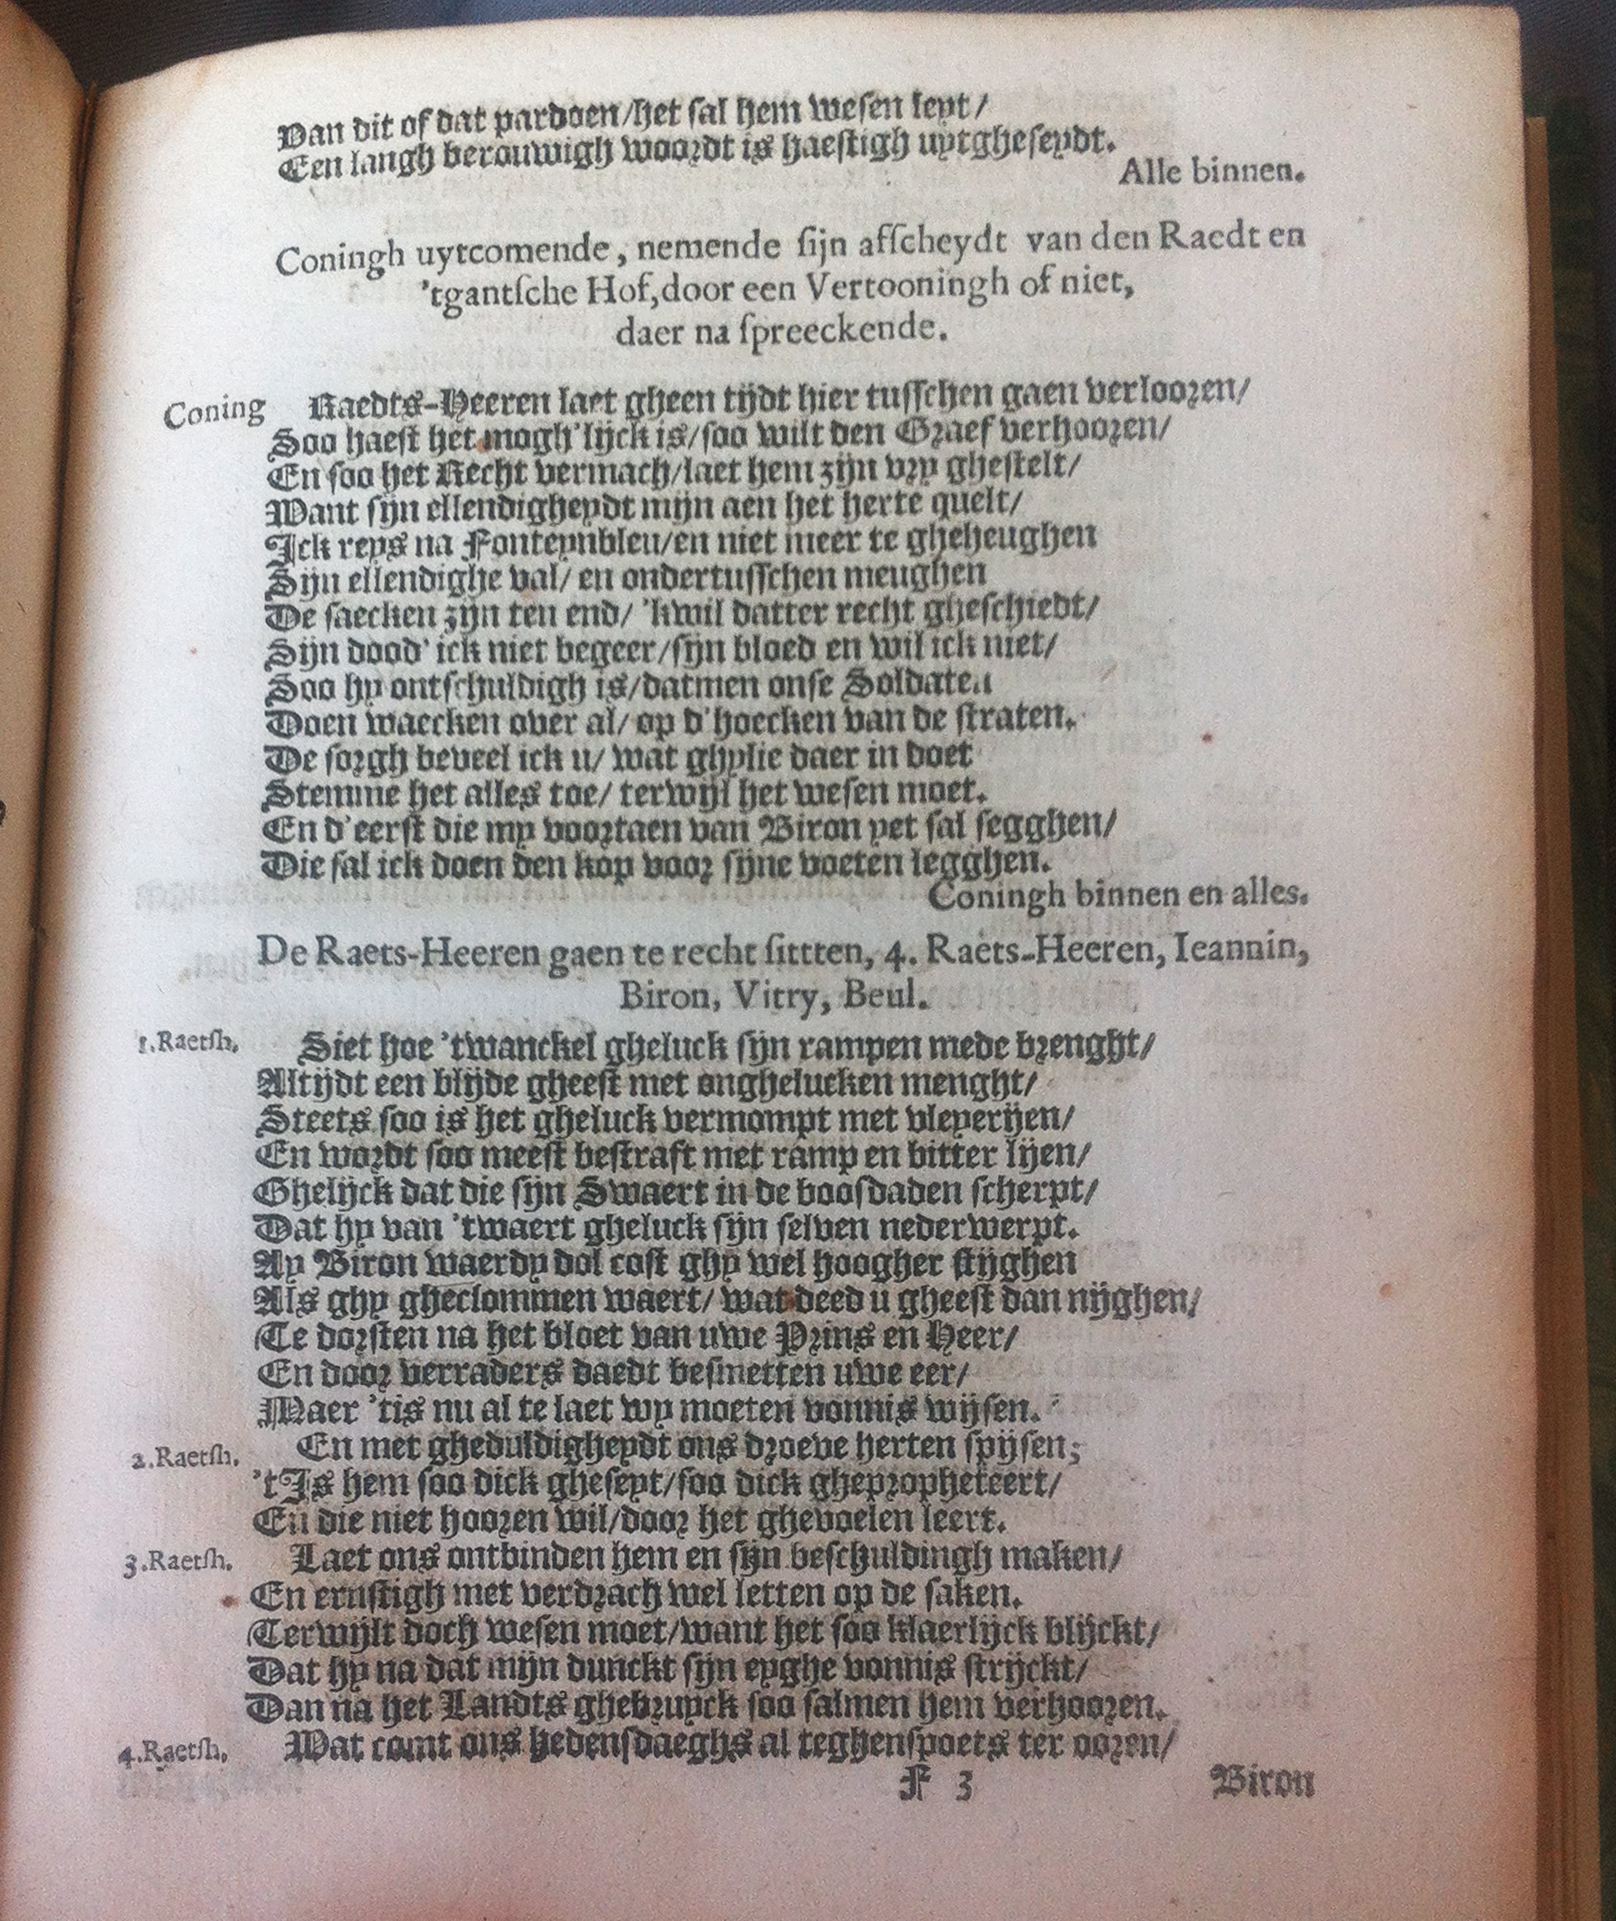 Van dit of dat pardoen/het sal hem wesen leyt/
Een langh berouwigh woordt is haestigh uytgheseydt.
Alle binnen.
Coningh uytcomende, nemende ſijn afſcheydt van den Raedt en
'tgantſche Hof,door een Vertooningh of niet,
daer na ſpreeckende.
Coning Raedts-Heeren laet gheen tijdt hier tuſſchen gaen verlooren/
Soo haeſt het mogh'lijck is/ſoo wilt den Graef verhooren/
En ſoo het Recht vermach/laet hem zijn vry gheſtelt/
Want ſijn ellendigheydt mijn aen het herte quelt/
Ick reys na Fonteynbleu/en niet meer te gheheughen
Sijn ellendighe val/ en ondertuſſchen meughen
De ſaecken zijn ten end/ 'kwil datter recht gheſchiedt/
Sijn dood' ick niet begeer/ſijn bloed en wil ick niet/
Soo hy ontſchuldigh is/datmen onſe Soldaten
Doen waecken over al/ op d'hoecken van de ſtraten.
De ſorgh beveel ick u/ wat ghylie daer in doet
Stemme het alles toe/ terwijl het weſen moet.
En d'eerſt die my voortaen van Biron yet ſal ſegghen/
Die ſal ick doen den kop voor ſijne voeten legghen.
Coningh binnen en alles.
De Raets-Heeren gaen te recht ſittten, 4. Raets-Heeren, Ieannin,
Biron, Vitry, Beul.
1.Raetſh. Siet hoe 'twanckel gheluck ſijn rampen mede brenght/
Altijdt een blijde gheeſt met onghelucken menght/
Steets ſoo is het gheluck vermompt met vleyerijen/
En wordt ſoo meeſt beſtraft met ramp en bitter lijen/
Ghelijck dat die ſijn Swaert in de boosdaden ſcherpt/
Dat hy van 'twaert gheluck ſijn ſelven nederwerpt.
Ay Biron waerdy dol coſt ghy wel hoogher ſtijghen
Als ghy gheclommen waert/ wat deed u gheeſt dan nijghen/
Te dorſten na het bloet van uwe Prins en Heer/
En door verraders daedt beſmetten uwe eer/
Maer 'tis nu al te laet wy moeten vonnis wijſen.
2.Raetſh. En met gheduldigheydt ons droeve herten ſpijſen;
'tIs hem ſoo dick gheſeyt/ſoo dick ghepropheteert/
En die niet hooren wil/door het ghevoelen leert.
3.Raetſh. Laet ons ontbinden hem en ſijn beſchuldingh maken/
En ernſtigh met verdrach wel letten op de ſaken.
Terwijlt doch weſen moet/want het ſoo klaerlijck blijckt/
Dat hy na dat mijn dunckt ſijn eyghe vonnis ſtrijckt/
Dan na het Landts ghebruyck ſoo ſalmen hem verhooren.
4.Raetſh. Wat comt ons hedenſdaeghs al teghenſpoets ter ooren/
F 3 Biron